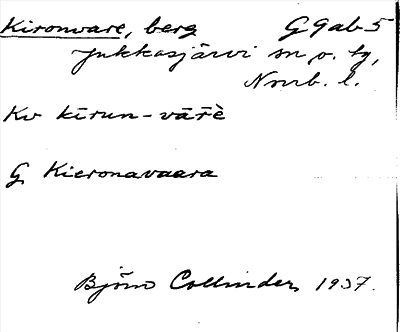 Kironvare, berg G9ab5
Jukkasjärvi sn o. tg,
Norrb. l.
Kv kīrun-vāřè
G Kieronavaara
Björn Collinder 1937.